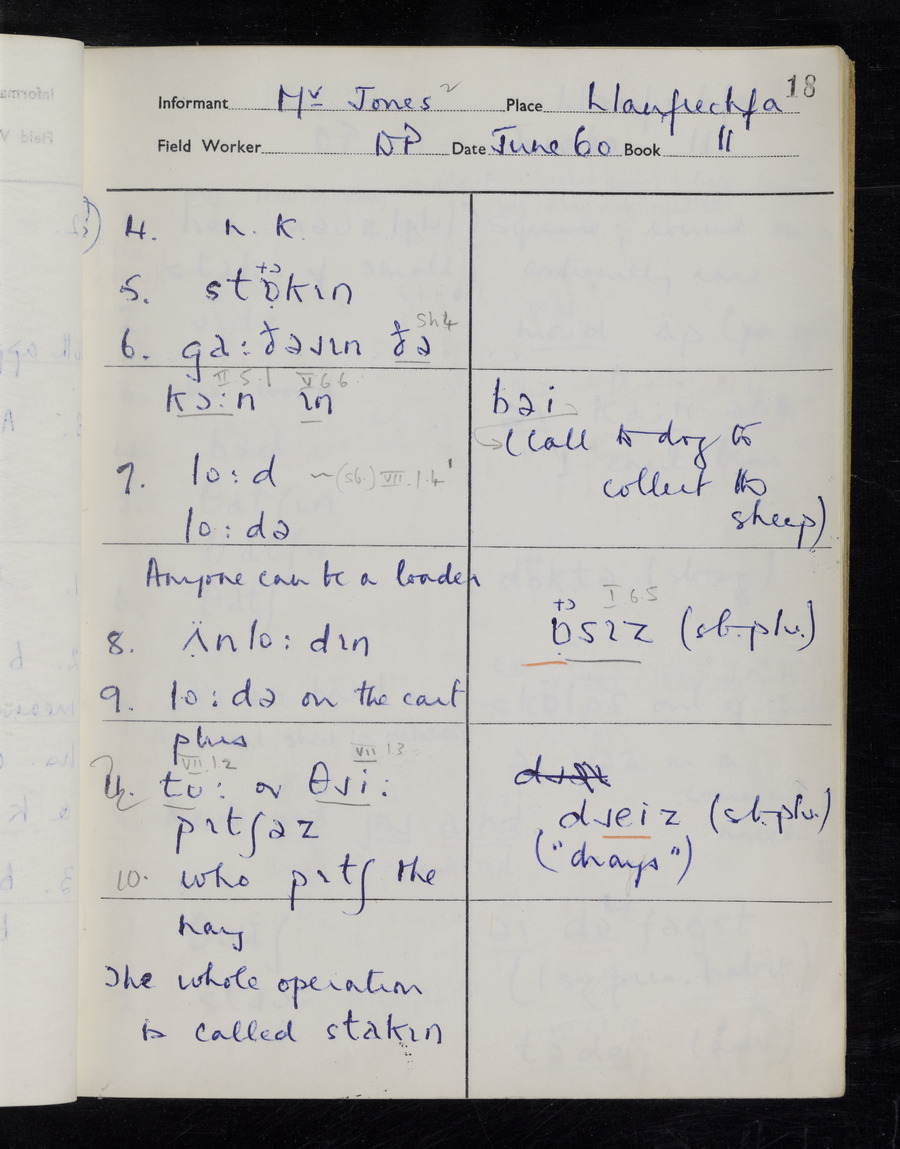 18
Informant Mr Jones Place Llanfrechfa
Field Worker DP Date June 60 Book II
4. n. k.
5. stɒ̣kɪn
+ɔ
6. gaːðəɹɪn ðə
sh4
II 5.1 V 6 6
kɔːn ɪn
7. loːd ~(sb.) VII.1.4
loːdə
Anyone can be a loader
8. ʌ̈nloːdɪn
9. loːdə on the cart
plus
VII.1.2 VII 13
tuː or θɹiː
pɪtʃəz
10. who pɪtʃ the
hay
The whole operation
is called stakɪn
bəi
(Call to dog to
collect the
sheep)
+ɔ I 6.5
ɒ̣sɪz (sb.plu.)
dɹeiz (sb.plu)
("drays")